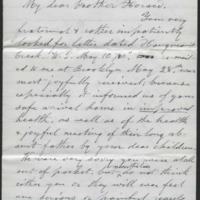 My dear Brother Horace.
Your very
fraternal & rather impatiently
looked for letter dated
Creek, May 10,
to me at Brooklyn May 28th was
most joyfully received, because
especially it informed us of your
safe arrival home in improved
health, as well as of the health
& joyful meeting of their long ab-
sent father by your dear children.
We are very sorry you were
out of pocket, but do not think
either you or they will ever feel
any serious or